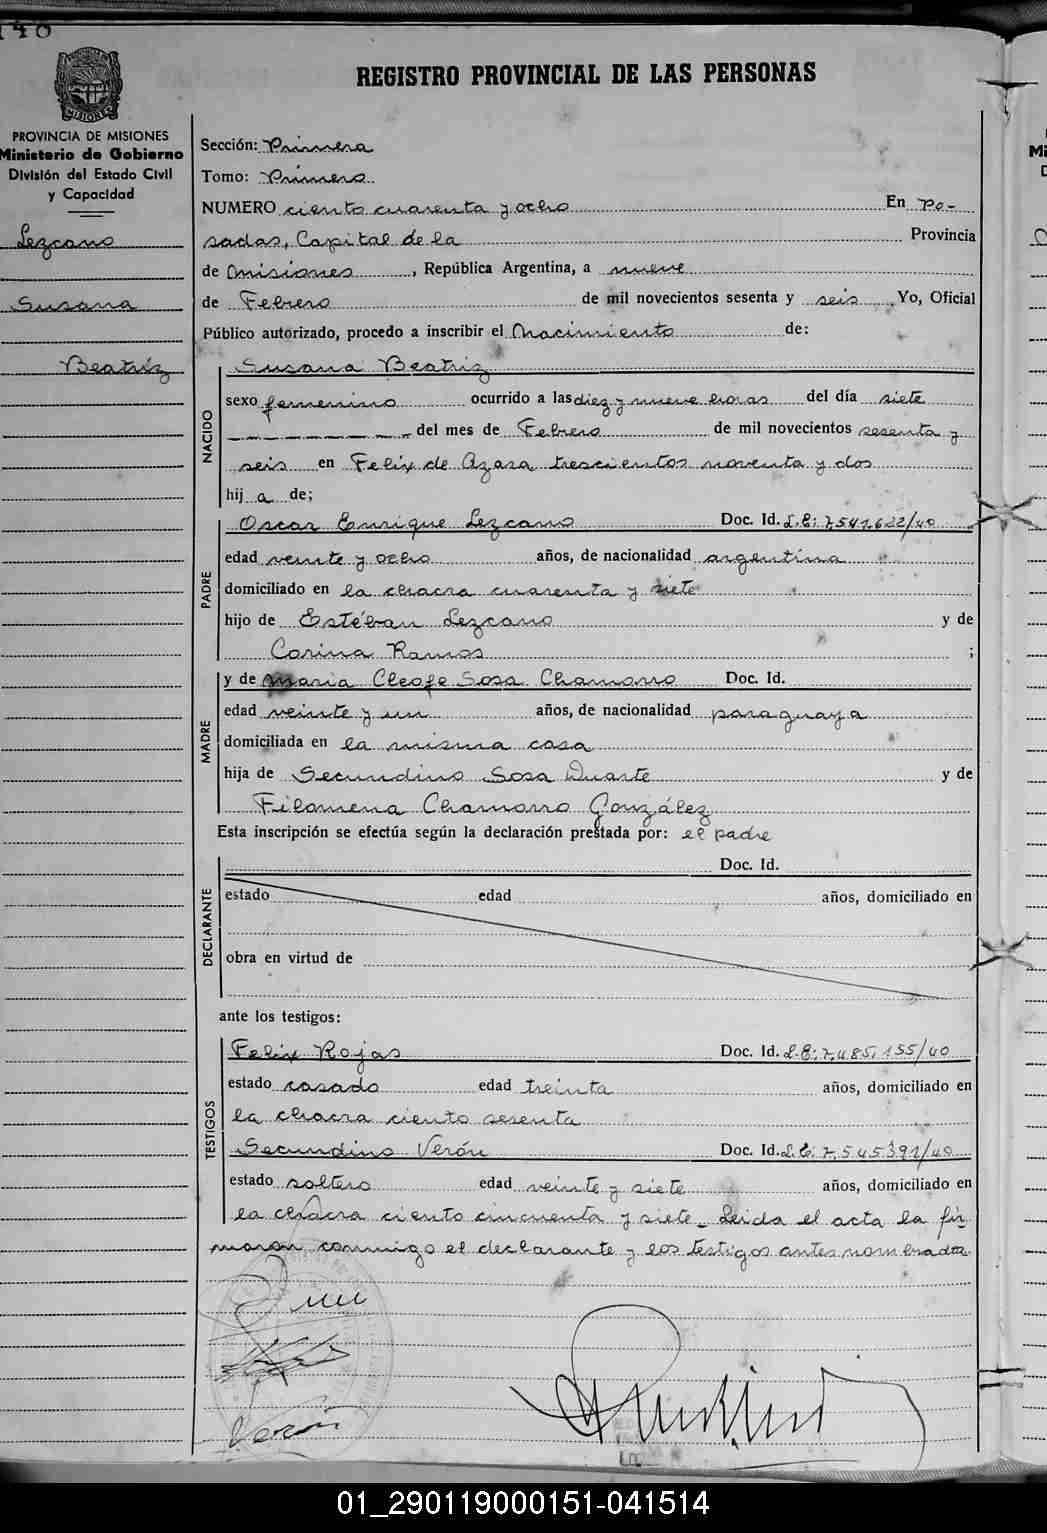 148
REGISTRO PROVINCIAL DE LAS PERSONAS
PROVINCIA DE MISIONES
Ministerio de Gobierno
División del Estado Civil
y Capacidad
Lezcano
Susana
Beatriz
Sección: Primera
Tomo: Primero
NUMERO ciento cuarenta y ocho En Po-
sadas, Capital de la Provincia
de Misiones, República Argentina, a nueve
de Febrero de mil novecientos sesenta y seis Yo, Oficial
Público autorizado, procedo a inscribir el Nacimiento de:
NACIDO
Susana Beatriz
sexo femenino ocurrido a las diez y nueve horas del día siete
del mes de Febrero de mil novecientos sesenta y
seis en Felix de Azara trescientos noventa y dos
hij a de;
PADRE
Oscar Enrique Lezcano Doc. Id. L.E: 7,541,622/40
edad veinte y ocho años, de nacionalidad argentina
domiciliado en la chacra cuarenta y siete
hijo de Estéban Lezcano y de
Corina Ramos ;
MADRE
y de Maria Cleofe Sosa Chamorro Doc. Id.
edad veinte y un años, de nacionalidad paraguaya
domiciliada en la misma casa
hija de Secundino Sosa Duarte y de
Filomena Chamorro González
Esta inscripción se efectúa según la declaración prestada por: el padre
DECLARANTE
Doc. Id.
estado edad años, domiciliado en
obra en virtud de
ante los testigos:
TESTIGOS
Felix Rojas Doc. Id. L.E: 7,485,155/40
estado casado edad treinta años, domiciliado en
la chacra ciento sesenta
Secundino Verón Doc. Id. L.E: 7,545391/40
estado soltero edad veinte y siete años, domiciliado en
la chacra ciento cincuenta y siete_ Leida el acta la fir-
maron conmigo el declarante y los testigos antes nombrados
Verón
01_290119000151-041514